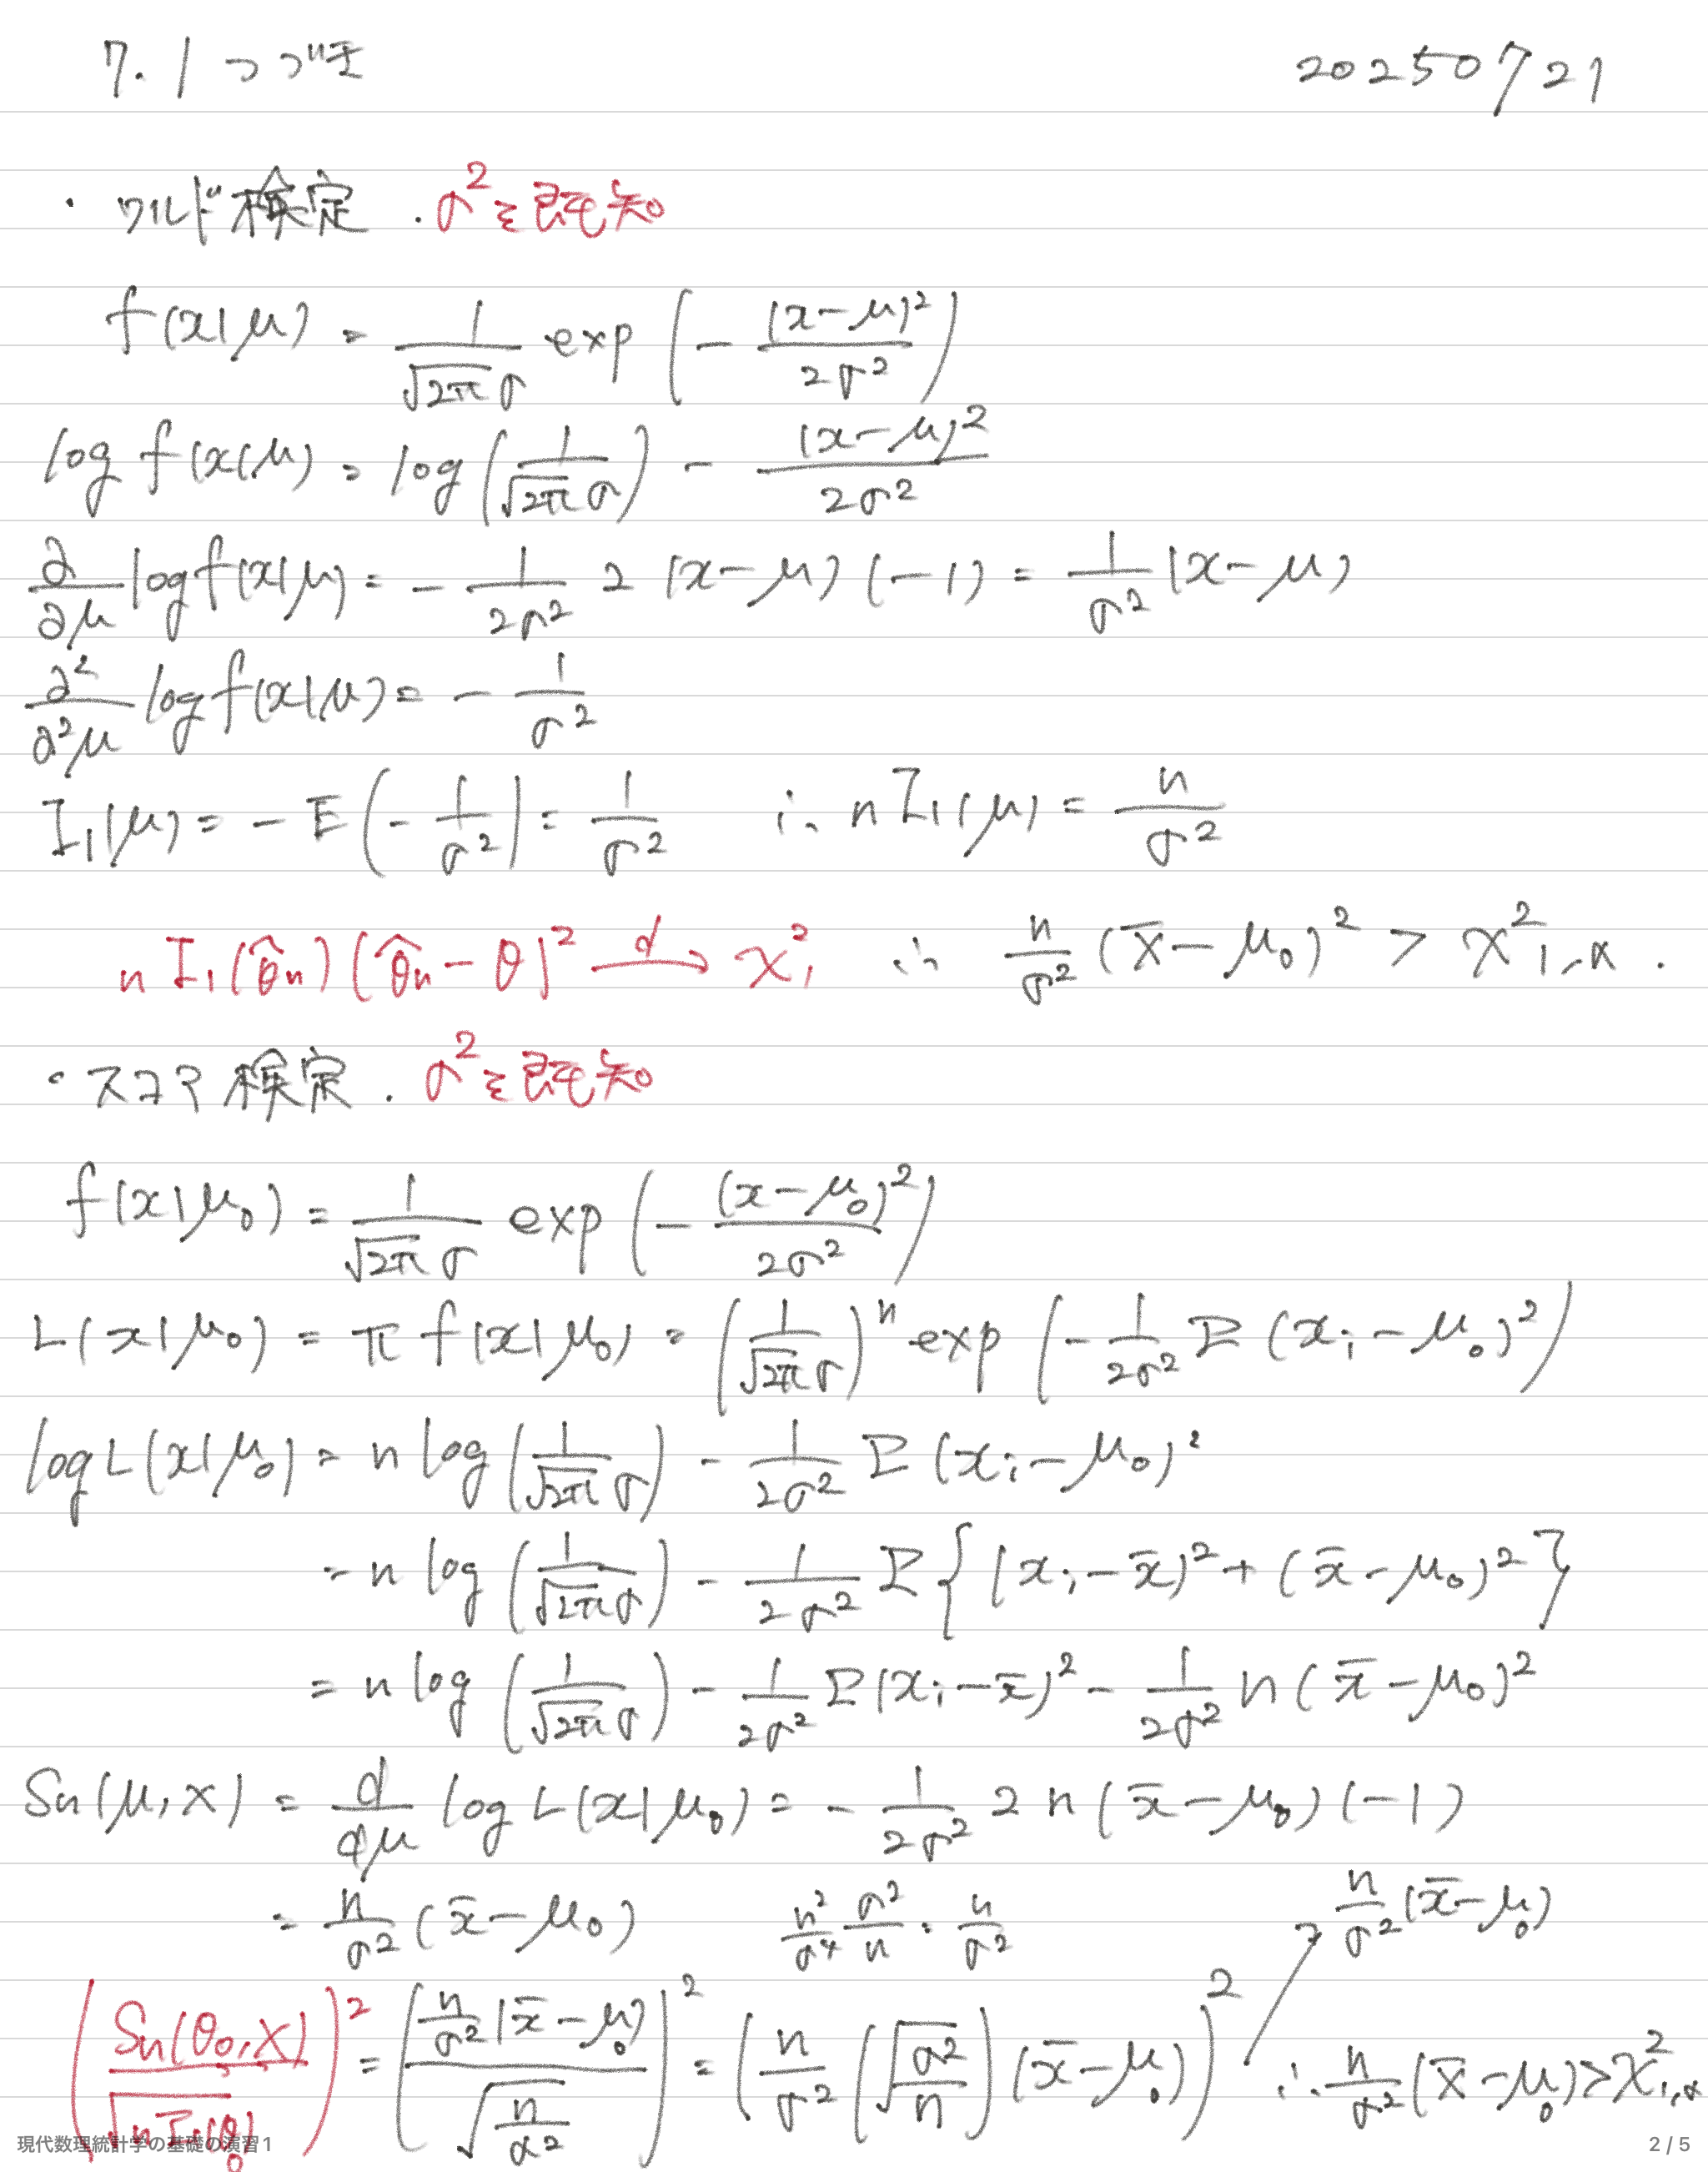 7.1 つづき 20250721
・ワルド検定. σ²を既知
f(x|μ) = 1/(√2π σ) exp(-(x-μ)²/(2σ²))
log f(x|μ) = log(1/(√2π σ)) - (x-μ)²/(2σ²)
∂/∂μ log f(x|μ) = -1/(2σ²) 2 (x-μ)(-1) = 1/σ² (x-μ)
∂²/∂²μ log f(x|μ) = -1/σ²
I₁(μ) = -E(-1/σ²) = 1/σ² ∴ nI₁(μ) = n/σ²
n I₁(θ̂n)(θ̂n - θ)² →d χ²₁ ∴ n/σ² (X̄ - μ₀)² > χ²₁,α.
・スコア検定. σ²を既知
f(x|μ₀) = 1/(√2π σ) exp(-(x-μ₀)²/(2σ²))
L(x|μ₀) = π f(x|μ₀) = (1/(√2π σ))ⁿ exp(-1/(2σ²) Σ(xi-μ₀)²)
log L(x|μ₀) = n log(1/(√2π σ)) - 1/(2σ²) Σ(xi-μ₀)²
= n log(1/(√2π σ)) - 1/(2σ²) Σ{(xi-x̄)² + (x̄-μ₀)²}
= n log(1/(√2π σ)) - 1/(2σ²) Σ(xi-x̄)² - 1/(2σ²) n(x̄-μ₀)²
Sn(μ, X) = d/dμ log L(x|μ₀) = -1/(2σ²) 2 n(x̄-μ₀)(-1)
= n/σ² (x̄-μ₀) n²/σ⁴ σ²/n = n/σ² n/σ² (x̄-μ₀)
(Sn(θ₀, X)/√(nI₁(θ₀)))² = ((n/σ² (x̄-μ₀))/√(n/σ²))² = (n/σ² (√(σ²/n)) (x̄-μ₀))² ∴ n/σ² (X̄-μ₀) > χ²₁,α
現代数理統計学の基礎の演習1 2 / 5